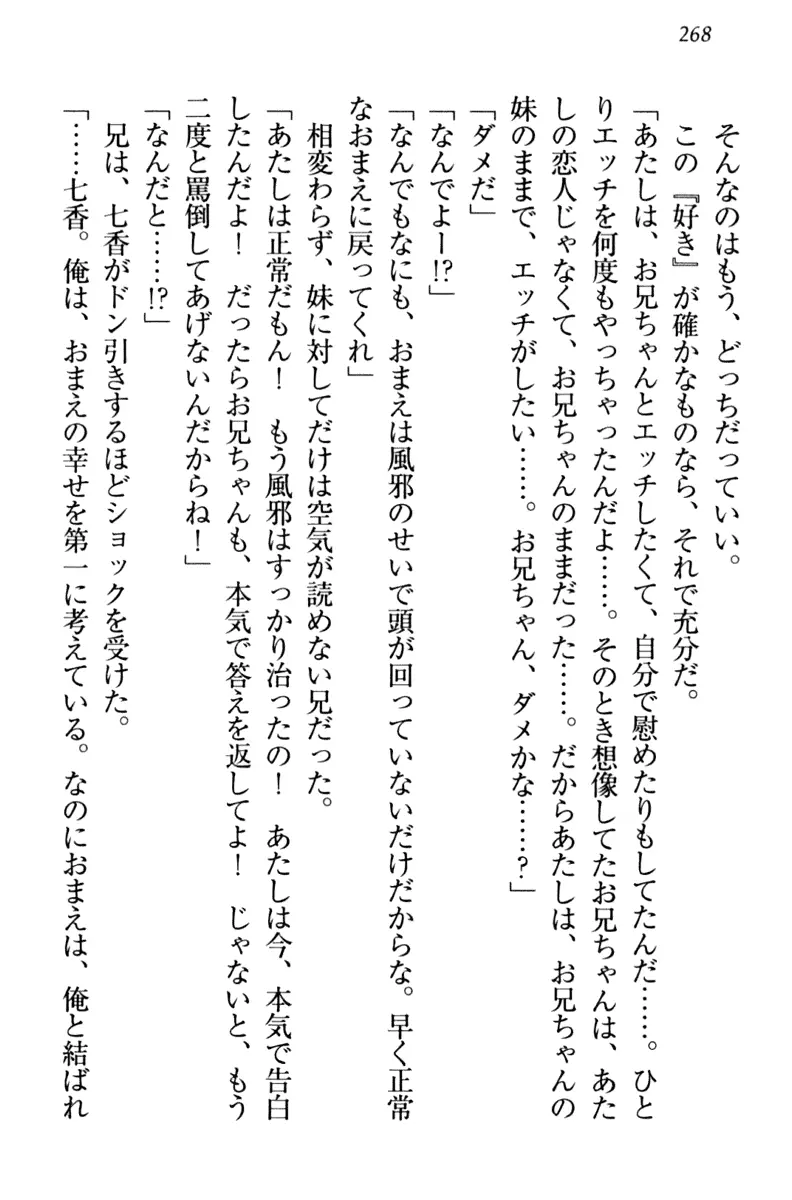 268
そんなのはもう、どっちだっていい。
この『好き』が確かなものなら、それで充分だ。
「あたしは、お兄ちゃんとエッチしたくて、自分で慰めたりもしてたんだ……。ひと
りエッチを何度もやっちゃったんだよ……。そのとき想像してたお兄ちゃんは、あた
しの恋人じゃなくて、お兄ちゃんのままだった……。だからあたしは、お兄ちゃんの
妹のままで、エッチがしたい……。お兄ちゃん、ダメかな……？」
「ダメだ」
「なんでよー!?」
「なんでもなにも、おまえは風邪のせいで頭が回っていないだけだからな。早く正常
なおまえに戻ってくれ」
相変わらず、妹に対してだけは空気が読めない兄だった。
「あたしは正常だもん！　もう風邪はすっかり治ったの！　あたしは今、本気で告白
したんだよ！　だったらお兄ちゃんも、本気で答えを返してよ！　じゃないと、もう
二度と罵倒してあげないんだからね！」
「なんだと……!?」
兄は、七香がドン引きするほどショックを受けた。
「……七香。俺は、おまえの幸せを第一に考えている。なのにおまえは、俺と結ばれ